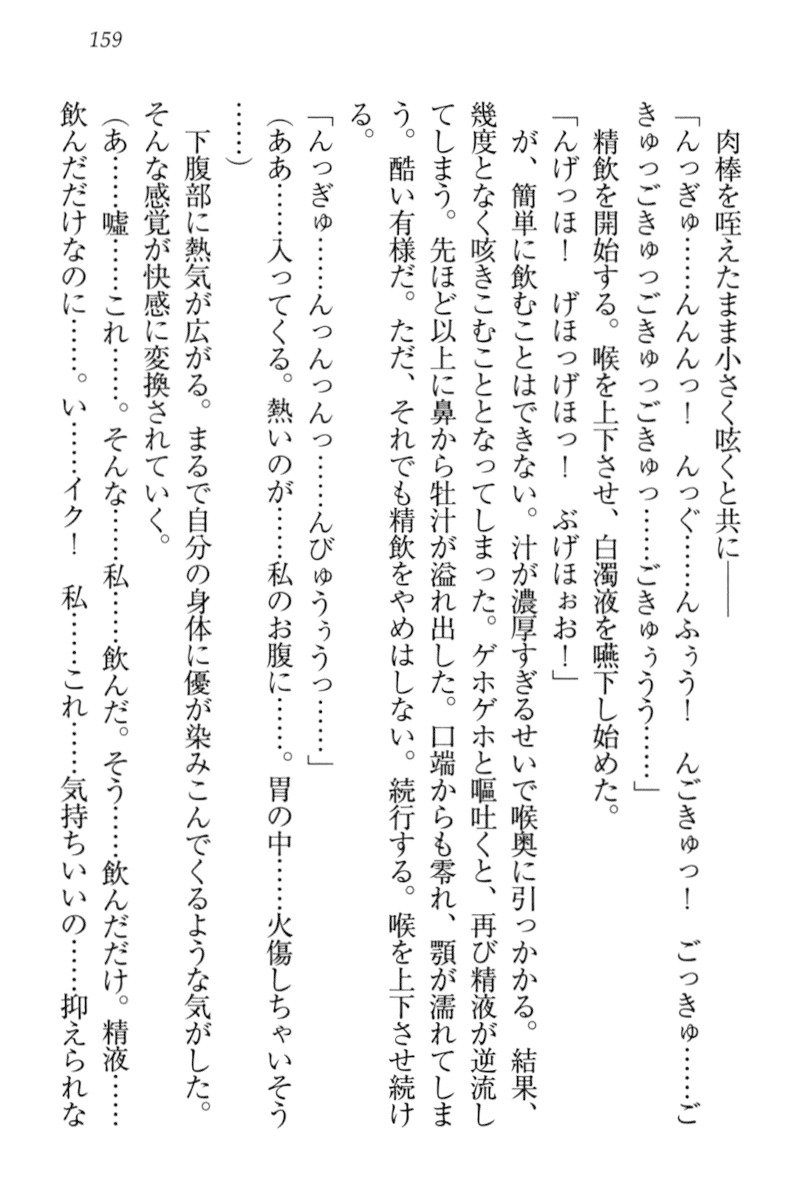 159
肉棒を咥えたまま小さく呟くと共に――
「んっぎゅ……んんんっ！　んっぐ……んふぅう！　んごきゅっ！　ごっきゅ……ご
きゅっごきゅっごきゅっごきゅっ……ごきゅぅうう……」
精飲を開始する。喉を上下させ、白濁液を嚥下し始めた。
「んげっほ！　げほっげほっ！　ぶげほぉお！」
が、簡単に飲むことはできない。汁が濃厚すぎるせいで喉奥に引っかかる。結果、
幾度となく咳きこむこととなってしまった。ゲホゲホと嘔吐くと、再び精液が逆流し
てしまう。先ほど以上に鼻から牡汁が溢れ出した。口端からも零れ、顎が濡れてしま
う。酷い有様だ。ただ、それでも精飲をやめはしない。続行する。喉を上下させ続け
る。
「んっぎゅ……んっんっんっ……んびゅうぅうっ……」
（ああ……入ってくる。熱いのが……私のお腹に……。胃の中……火傷しちゃいそう
……）
下腹部に熱気が広がる。まるで自分の身体に優が染みこんでくるような気がした。
そんな感覚が快感に変換されていく。
（あ……嘘……これ……。そんな……私……飲んだ。そう……飲んだだけ。精液……
飲んだだけなのに……。い……イク！　私……これ……気持ちいいの……抑えられな